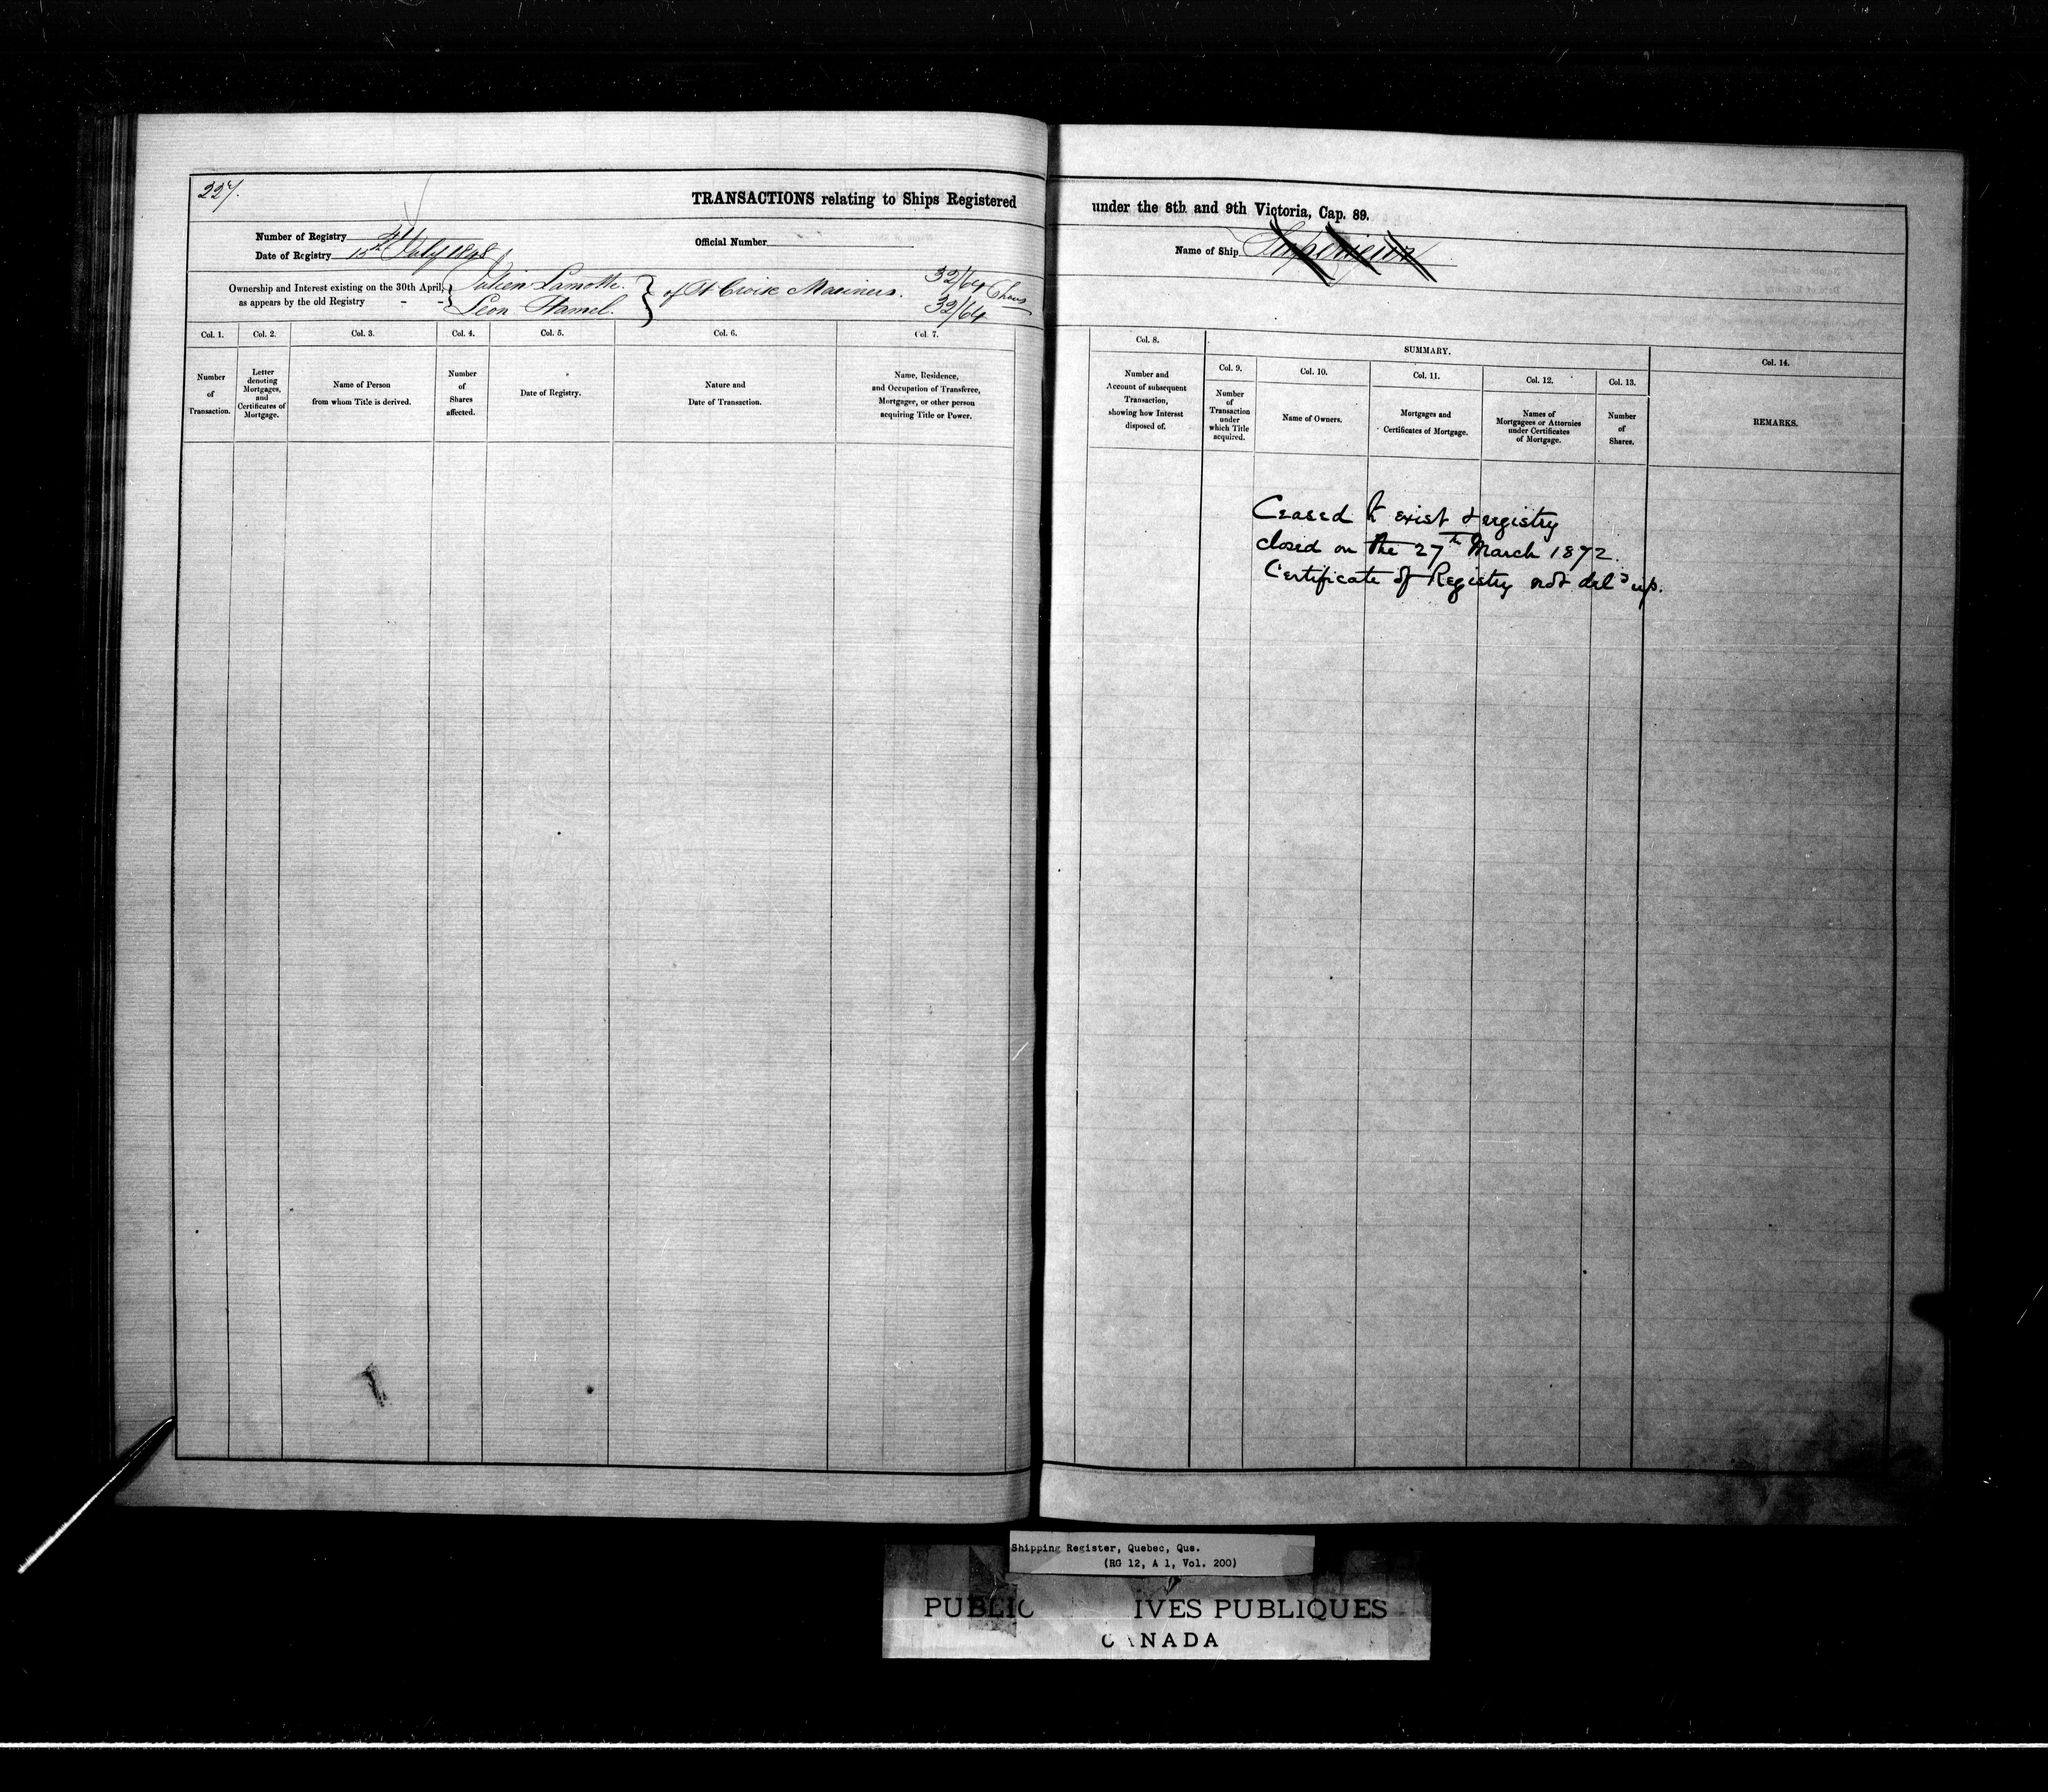 227.
TRANSACTIONS relating to Ships Registered under the 8th and 9th Victoria, Cap. 89.
Number of Registry
Official Number
Name of Ship
Date of Registry 15th July 1848
Ownership and Interest existing on the 30th April, as appears by the old Registry - -
Julien Lamotte.
Leon Hamel.
of St Croix Mariners.
32/64 Shares
32/64
Col. 1.
Number of Transaction.
Col. 2.
Letter denoting Mortgages, and Certificates of Mortgage.
Col. 3.
Name of Person from whom Title is derived.
Col. 4.
Number of Shares affected.
Col. 5.
Date of Registry.
Col. 6.
Nature and Date of Transaction.
Col. 7.
Name, Residence, and Occupation of Transferee, Mortgagee, or other person acquiring Title or Power.
Col. 8.
Number and Account of subsequent Transaction, showing how Interest disposed of.
SUMMARY.
Col. 9.
Number of Transaction under which Title acquired.
Col. 10.
Name of Owners.
Col. 11.
Mortgages and Certificates of Mortgage.
Col. 12.
Names of Mortgagees or Attornies under Certificates of Mortgage.
Col. 13.
Number of Shares.
Col. 14.
REMARKS.
Ceased to exist & registry
closed on the 27th March 1872.
Certificate of Registry not deld up.
Shipping Register, Quebec, Que.
(RG 12, A 1, Vol. 200)
PUBLIC IVES PUBLIQUES
CANADA